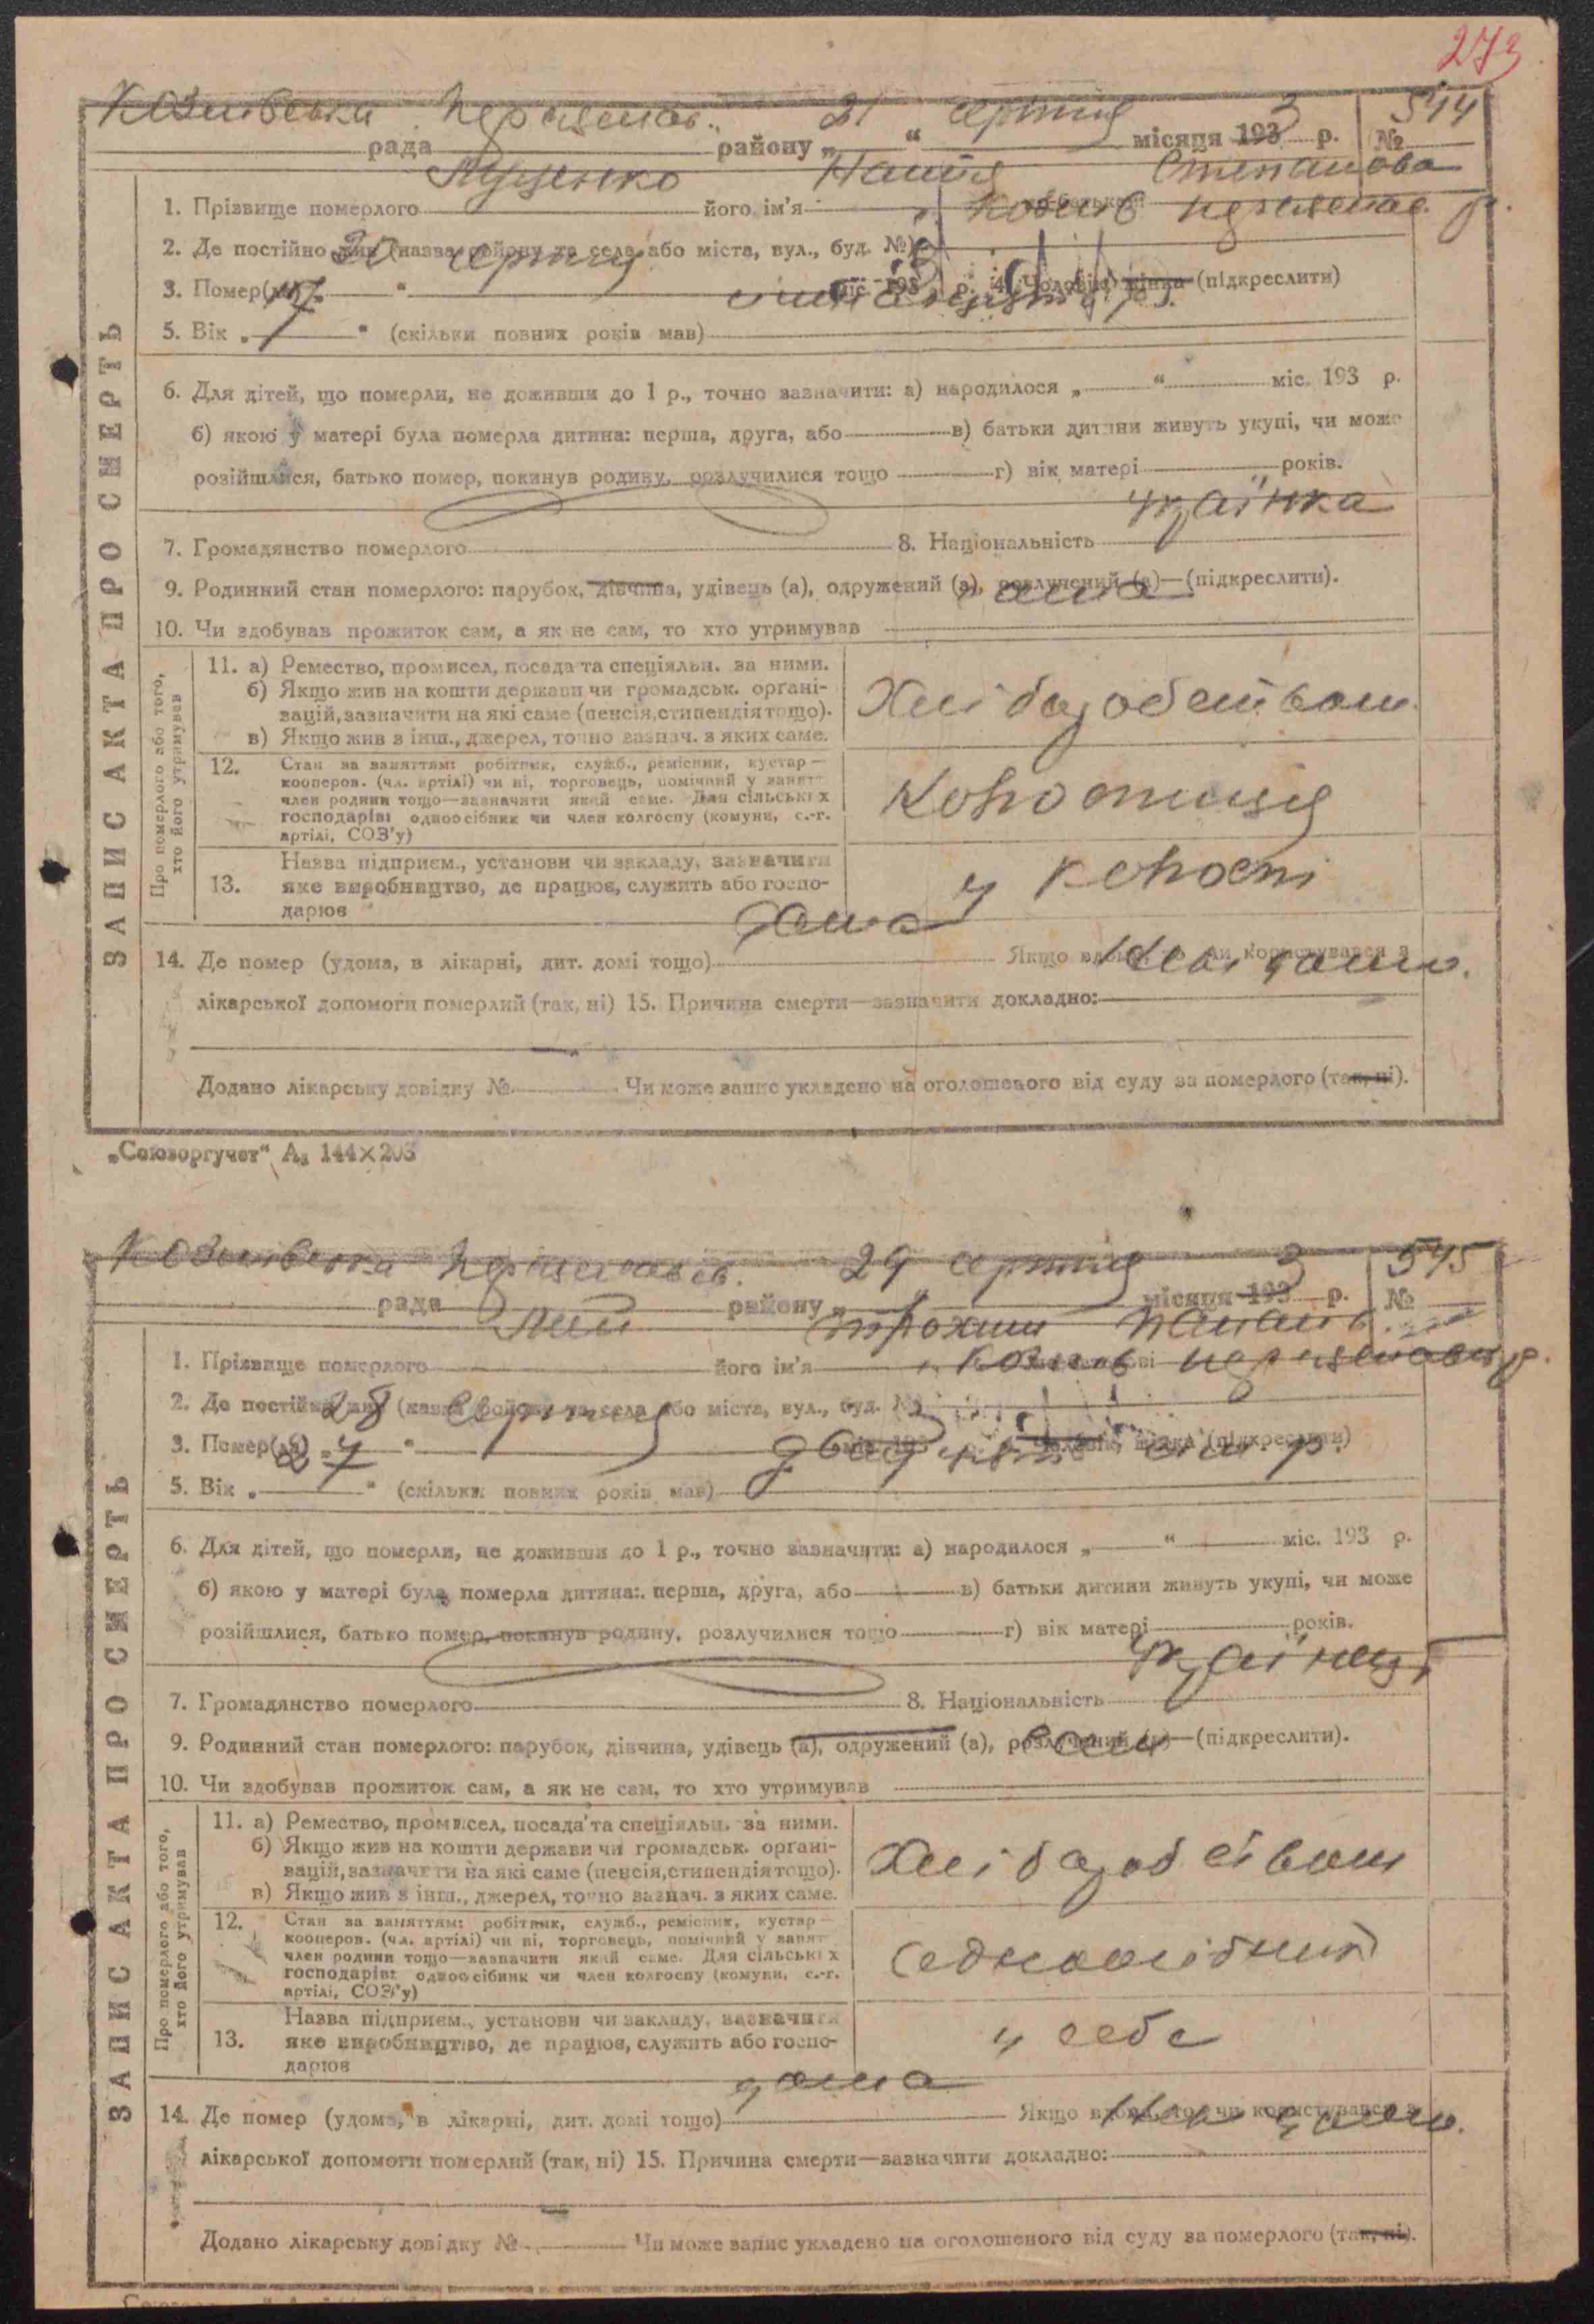 273
Козинська Переяслав. 21 серпня 3 544
рада району „ “ місяця 193 р. №
Луценко Настя Степанова
1. Прізвище померлого його ім'я
Козинь Переяслав. р.
2. Де постійно жив (назва району та села або міста, вул., буд. №)
20 серпня 3
3. Помер(ла) „ “ міс. 193 р. 4. Чоловік, жінка (підкреслити)
17
5. Вік „ “ (скільки повних років мав)
6. Для дітей, що померли, не доживши до 1 р., точно зазначити: а) народилося „ “ міс. 193 р.
б) якою у матері була померла дитина: перша, друга, або в) батьки дитини живуть укупі, чи може
розійшлися, батько помер, покинув родину, розлучилися тощо г) вік матері років.
українка
7. Громадянство померлого 8. Національність
9. Родинний стан померлого: парубок, дівчина, удівець (а), одружений (а), розлучений (а)—(підкреслити).
сама
10. Чи здобував прожиток сам, а як не сам, то хто утримував
ЗАПИС АКТА ПРО СМЕРТЬ
Про померлого або того,
хто його утримував
11. а) Ремество, промисел, посада та спеціяльн. за ними.
б) Якщо жив на кошти держави чи громадськ. органі-
зацій, зазначити на які саме (пенсія, стипендія тощо).
в) Якщо жив з інш., джерел, точно зазнач. з яких саме.
Хліборобством
12. Стан за заняттям: робітник, служб., ремісник, кустар—
кооперов. (чл. артілі) чи ні, торговець, помічний у занятт
член родини тощо—зазначити який саме. Для сільських
господарів: одноосібник чи член колгоспу (комуни, с.-г.
артілі, СОЗ'у)
13. Назва підприєм., установи чи закладу, зазначити
яке виробництво, де працює, служить або госпо-
дарює
у колгоспі
дома
14. Де помер (удома, в лікарні, дит. домі тощо) Якщо вдома, то чи користувався з
Невідомо.
лікарської допомоги померлий (так, ні) 15. Причина смерти—зазначити докладно:
Додано лікарську довідку № Чи може запис укладено на оголошеного від суду за померлого (так, ні).
„Союзоргучет“ А₃ 144×203
Козинська Переяславсь. 29 серпня 3 545
рада району „ “ місяця 193 р. №
Трохим
1. Прізвище померлого його ім'я
Козинь Переяслав р.
2. Де постійно жив (назва району та села або міста, вул., буд. №)
28 серпня 3
3. Помер(ла) „ “ міс. 193 р. 4. Чоловік, жінка (підкреслити)
27 двадцять сім р.
5. Вік „ “ (скільки повних років мав)
6. Для дітей, що померли, не доживши до 1 р., точно зазначити: а) народилося „ “ міс. 193 р.
б) якою у матері була померла дитина: перша, друга, або в) батьки дитини живуть укупі, чи може
розійшлися, батько помер, покинув родину, розлучилися тощо г) вік матері років.
українець
7. Громадянство померлого 8. Національність
9. Родинний стан померлого: парубок, дівчина, удівець (а), одружений (а), розлучений (а)—(підкреслити).
сам
10. Чи здобував прожиток сам, а як не сам, то хто утримував
ЗАПИС АКТА ПРО СМЕРТЬ
Про померлого або того,
хто його утримував
11. а) Ремество, промисел, посада та спеціяльн. за ними.
б) Якщо жив на кошти держави чи громадськ. органі-
зацій, зазначити на які саме (пенсія, стипендія тощо).
в) Якщо жив з інш., джерел, точно зазнач. з яких саме.
Хліборобством
12. Стан за заняттям: робітник, служб., ремісник, кустар—
кооперов. (чл. артілі) чи ні, торговець, помічний у занят
член родини тощо—зазначити який саме. Для сільських
господарів: одноосібник чи член колгоспу (комуни, с.-г.
артілі, СОЗ'у)
одноосібник
13. Назва підприєм., установи чи закладу, зазначити
яке виробництво, де працює, служить або госпо-
дарює
у себе
дома
14. Де помер (удома, в лікарні, дит. домі тощо) Якщо вдома, то чи користувався з
Невідомо.
лікарської допомоги померлий (так, ні) 15. Причина смерти—зазначити докладно:
Додано лікарську довідку № Чи може запис укладено на оголошеного від суду за померлого (так, ні).